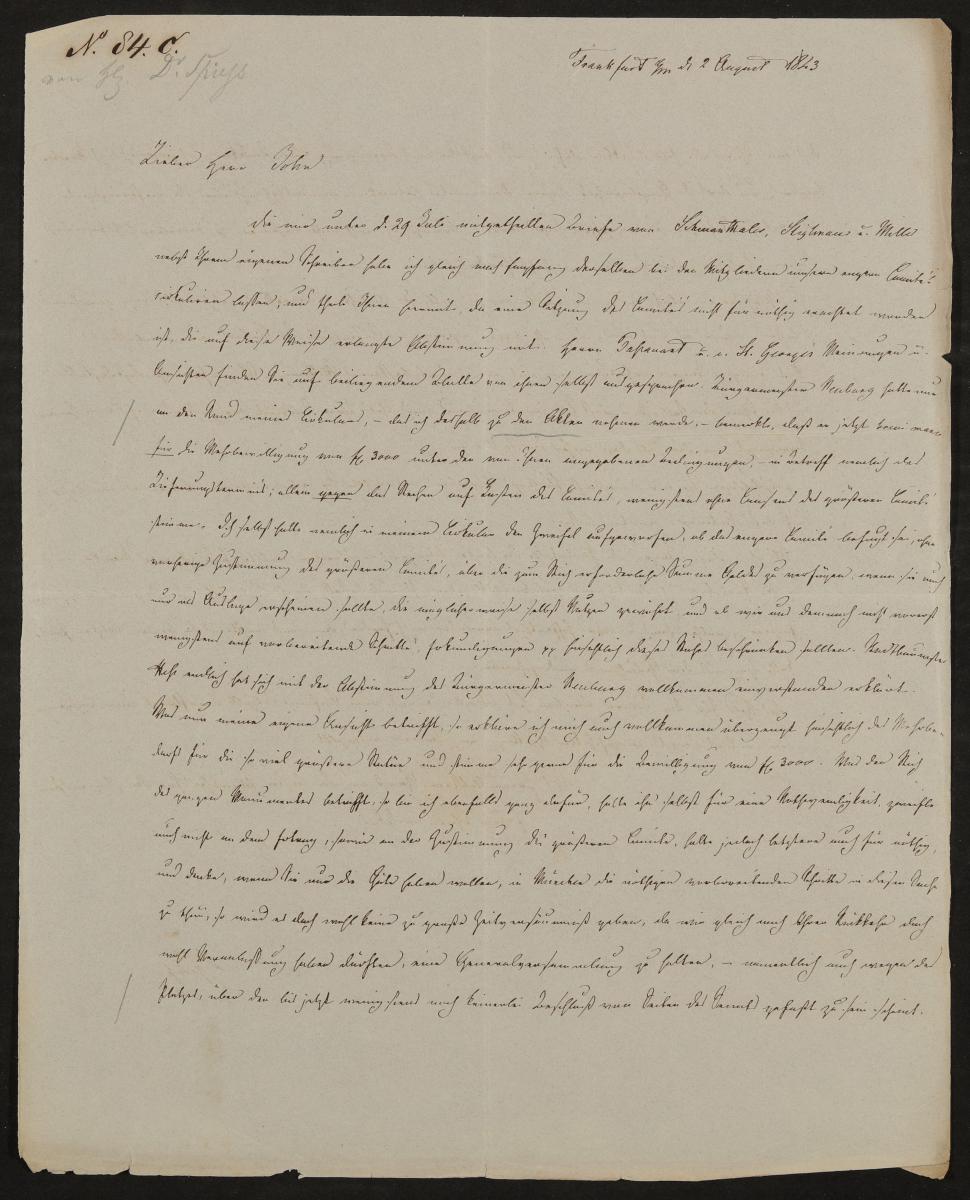 No. 84. C.
von H. Dr. Spiess
Frankfurt a/m d. 2 August 1843
Lieber Herr John
die mir unter d. 29 Juli mitgetheilten Briefe von Schwanthaler, Stiglmaier u. Miller
nebst Ihrem eigenen Schreiben habe ich gleich nach Empfang derselben bei den Mitgliedern unseres engeren Comité's
cirkuliren lassen, und theile Ihnen hiermit, da eine Sitzung des Comité's nicht für nöthig erachtet worden
ist, die auf diese Weise erlangte Abstimmung mit. Herrn Passavant u. v. St. George's Meinungen u.
Ansichten finden Sie auf beiliegendem Blatte von ihnen selbst ausgesprochen. Bürgermeister Neuburg hatte nur
an den Rand meines Cirkulars, – das ich deshalb zu den Akten nehmen werde, – bemerkt, daß er jetzt
für die Mehrbewilligung von fl. 3000 unter den von Ihnen angegebenen Bedingungen, – in Betreff nemlich des
Lieferungstermins; allein gegen das Stechen auf Kosten des Comité's, wenigstens ohne Consens des größeren Comité's
stimme. Ich selbst hatte nemlich in meinem Cirkular den Zweifel aufgeworfen, ob das engere Comité befugt sei, ohne
vorherige Zustimmung des größeren Comité's, über die zum Stich erforderliche Summe Geldes zu verfügen, wenn sie auch
nur als Auslage erscheinen sollte, die möglicherweise selbst Nutzen gewährt und ob wir uns demnach nicht vorerst
wenigstens auf vorbereitende Schritte, Erkundigungen pp hinsichtlich dieses Stichs beschränken sollten. Stadtbaumeister
Hess endlich hat sich mit der Abstimmung des Bürgermeister Neuburg vollkommen einverstanden erklärt.
Was nun meine eigene Ansicht betrifft, so erkläre ich mich auch vollkommen überzeugt hinsichtlich des Mehrbe-
darfs für die so viel größere Statue und stimme sehr gerne für die Bewilligung von fl. 3000. Was den Stich
des ganzen Monumentes betrifft, so bin ich ebenfalls ganz dafür, halte ihn selbst für eine Nothwendigkeit, zweifle
auch nicht an dem Erfolg, sowie an der Zustimmung des größeren Comité, halte jedoch letztere auch für nöthig,
und denke, wenn Sie nur die Güte haben wollen, in München die nöthigen vorbereitenden Schritte in dieser Sache
zu thun, so wird es doch wohl keine zu große Zeitversäumniß geben, da wir gleich nach Ihrer Rückkehr doch
wohl Veranlassung haben dürften, eine Generalversammlung zu halten, – namentlich auch wegen des
Platzes, über den bis jetzt wenigstens noch keinerlei Beschluß von Seiten des Senats gefaßt zu sein scheint.